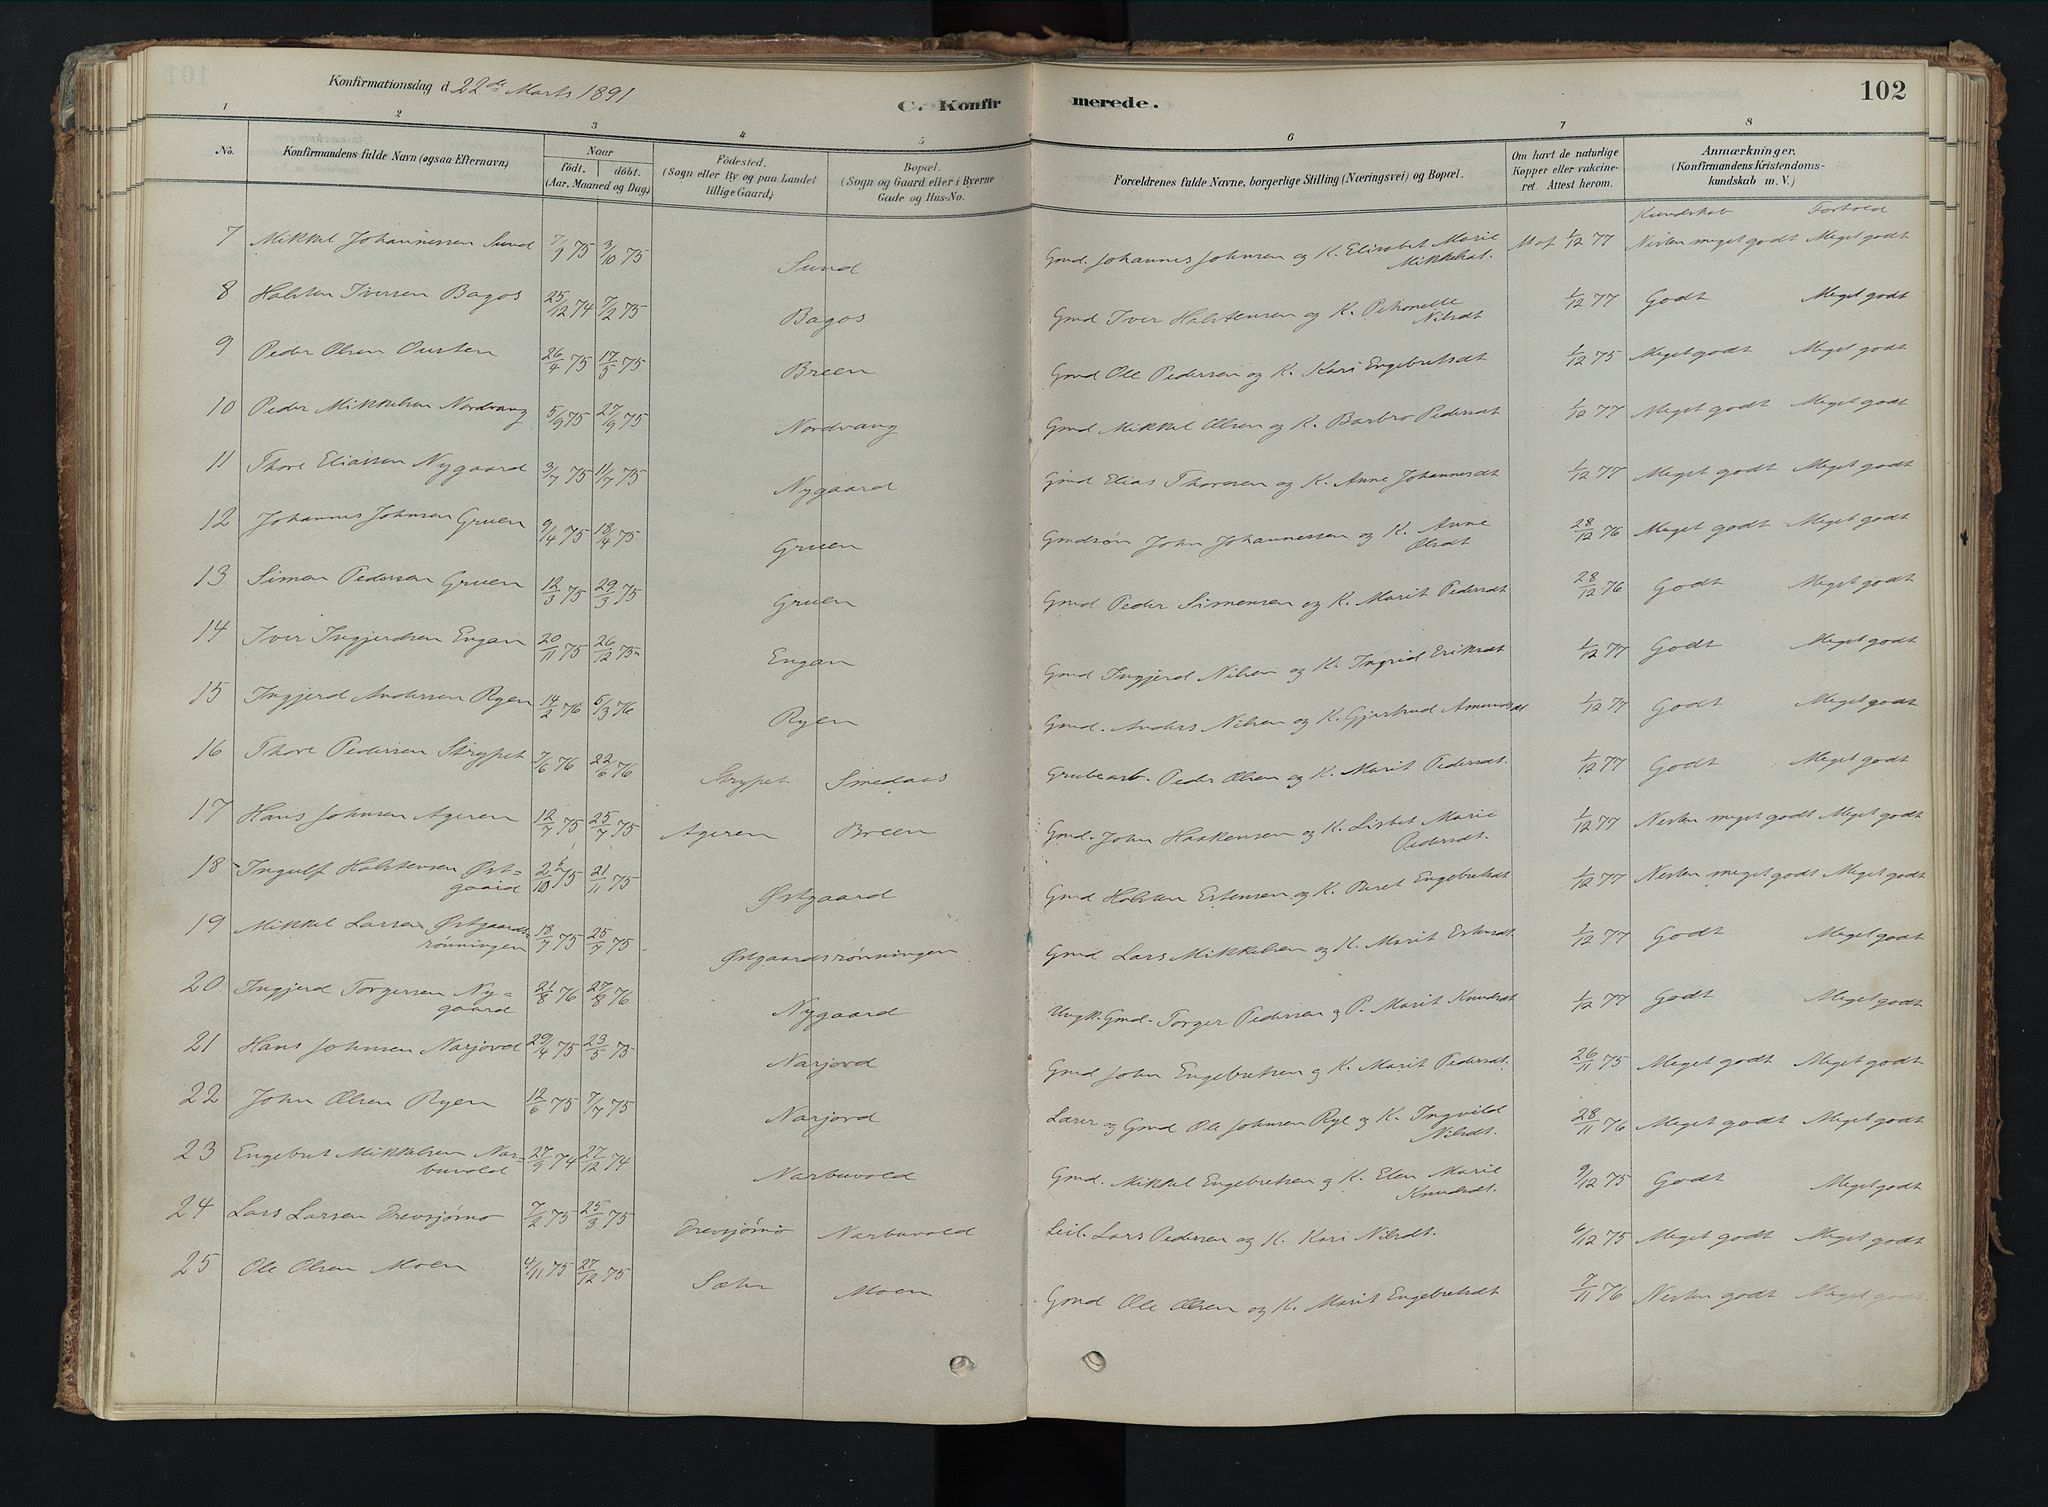 Konfirmationsdag d. 22de Marts 1891
C. Konfirmerede.
102
1 2 3 4 5 6 7 8
No.
Konfirmandens fulde Navn (ogsaa Efternavn)
Naar
födt. döbt.
(Aar, Maaned og Dag)
Födested.
(Sogn eller By og paa Landet
tillige Gaard)
Bopæl.
(Sogn og Gaard eller i Byerne
Gade og Hus-No.
Forældrenes fulde Navne, borgerlige Stilling (Næringsvei) og Bopæl.
Om havt de naturlige
Kopper eller vakcine-
ret. Attest herom.
Anmærkninger.
(Konfirmandens Kristendoms-
kundskab m. V.)
Kundskab Forhold
7 Mikkel Johannessen Sund 7/9 75 3/10 75 Sund Gmd. Johannes Johnsen og K. Elisabet Marie Mikkelsdt. 1/12 77 Nesten meget godt Meget godt
8 Halsten Iversen Bagos 25/12 74 7/2 75 Bagos Gmd Iver Halstensen og K. Petronelle Nilsdt 1/12 77 Godt Meget godt
9 Peder Olsen Ousten 26/4 75 17/5 75 Breen Gmd Ole Pedersen og K. Kari Engebretsdt 1/12 75 Meget godt Meget godt
10 Peder Mikkelsen Nordvang 5/9 75 27/9 75 Nordvang Gmd Mikkel Olsen og K. Barbro Pedersdt 1/12 77 Meget godt Meget godt
11 Thore Eliassen Nygaard 3/7 75 11/7 75 Nygaard Gmd Elias Thoresen og K. Anne Johannesdt 1/12 77 Meget godt Meget godt
12 Johannes Johnsen Gruen 9/4 75 18/4 75 Gruen Gmdsön John Johannessen og K. Anne Olsdt 28/12 76 Meget godt Meget godt
13 Simen Pedersen Gruen 12/3 75 29/3 75 Gruen Gmd Peder Simensen og K. Marit Pedersdt 28/12 76 Godt Meget godt
14 Iver Ingjerdsen Engan 20/11 75 26/12 75 Engan Gmd Ingjerd Nilsen og K. Ingrid Eriksdt 1/12 77 Godt Meget godt
15 Ingjerd Andersen Ryen 14/2 76 5/3 76 Ryen Gmd. Anders Nilsen og K. Gjertrud Amundsdt 1/12 77 Godt Meget godt
16 Thore Pedersen Strypet 7/6 76 22/6 76 Strypet Smedaas Grubearb. Peder Olsen og K. Marit Pedersdt. 1/12 77 Godt Meget godt
17 Hans Johnsen Ageren 12/7 75 25/7 75 Ageren Breen Gmd. John Haakensen og K. Lisbet Marie Pedersdt. 1/12 77 Nesten meget godt Meget godt
18 Ingulf Halstensen Østgaard 2/10 75 21/11 75 Østgaard Gmd Halsten Estensen og K. Beret Engebretsdt 1/12 77 Nesten meget godt Meget godt
19 Mikkel Larsen Østgaardsrönningen 18/7 75 25/7 75 Østgaardsrönningen Gmd Lars Mikkelsen og K. Marit Estensdt 1/12 77 Godt Meget godt
20 Ingjerd Torgersen Nygaard 21/8 76 27/8 76 Nygaard Ungk. Gmd. Torger Pedersen og P. Marit Knudsdt 1/12 77 Godt Meget godt
21 Hans Johnsen Narjord 29/4 75 23/5 75 Narjord Gmd John Engebretsen og K. Marit Pedersdt. 26/11 75 Meget godt Meget godt
22 John Olsen Ryen 12/6 75 7/7 75 Narjord Lærer og Gmd Ole Johnsen Rye og K. Ingvild Nilsdt. 28/11 76 Meget godt Meget godt
23 Engebret Mikkelsen Narbuvold 27/9 74 27/12 74 Narbuvold Gmd. Mikkel Engebretsen og K. Elen Marie Knudsdt. 9/12 75 Godt Meget godt
24 Lars Larsen Drevsjömo 7/2 75 25/3 75 Drevsjömo Narbuvold Leil. Lars Pedersen og K. Kari Nilsdt. 6/12 75 Meget godt Meget godt
25 Ole Olsen Moen 4/11 75 27/12 75 Sæter Moen Gmd Ole Olsen og K. Marit Engebretsdt 7/11 76 Nesten godt Meget godt